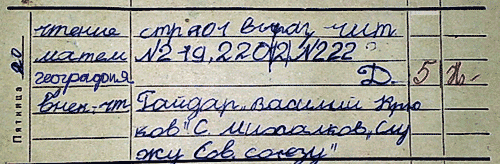 Пятница 20
чтение стр 101 выраз. чит.
матем №219, 220(2) №222
география Д. 5
Внек. чт Гайдар „Василий Крю
ков" С. Михалков „Слу
жу Сов. союзу"